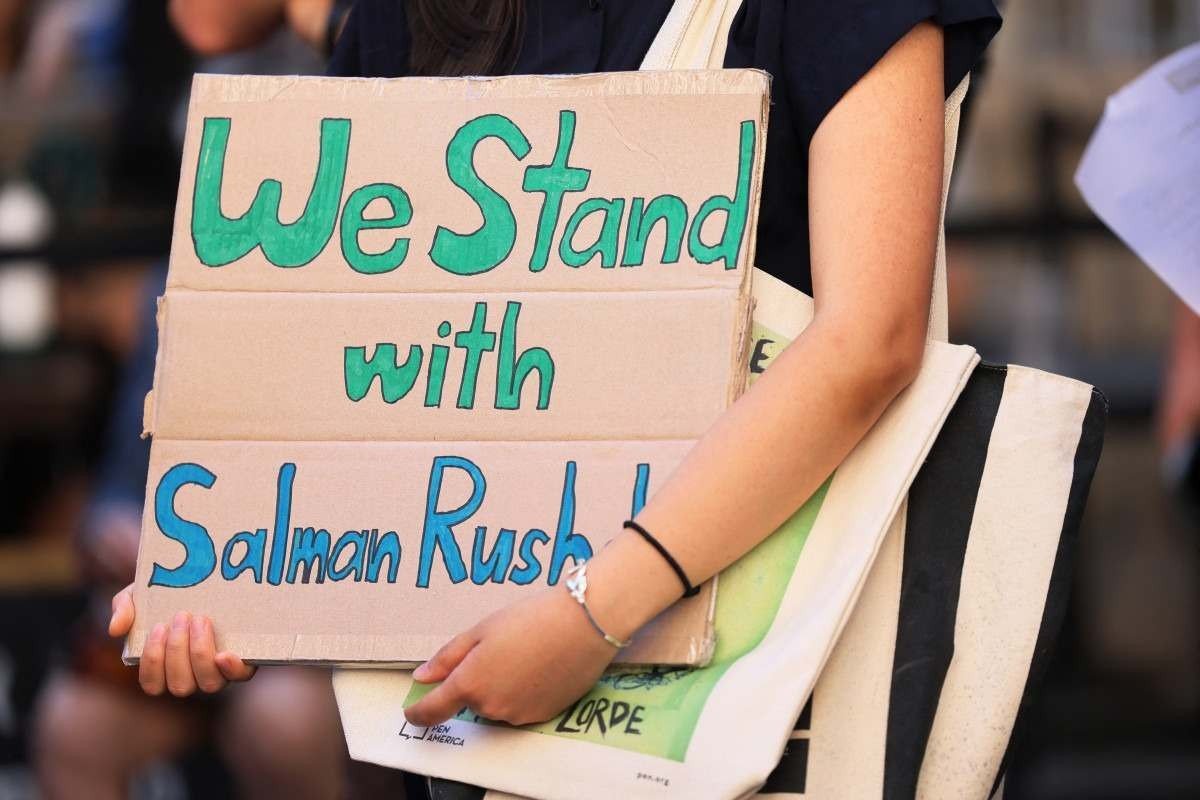 We Stand
with
Salman Rush
E
LORDE
PEN
AMERICA
pen.org